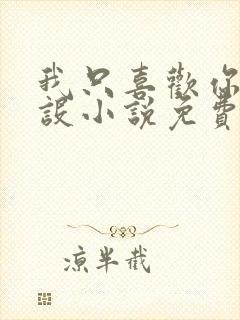 我只喜歡你
設小說免費
涼半截